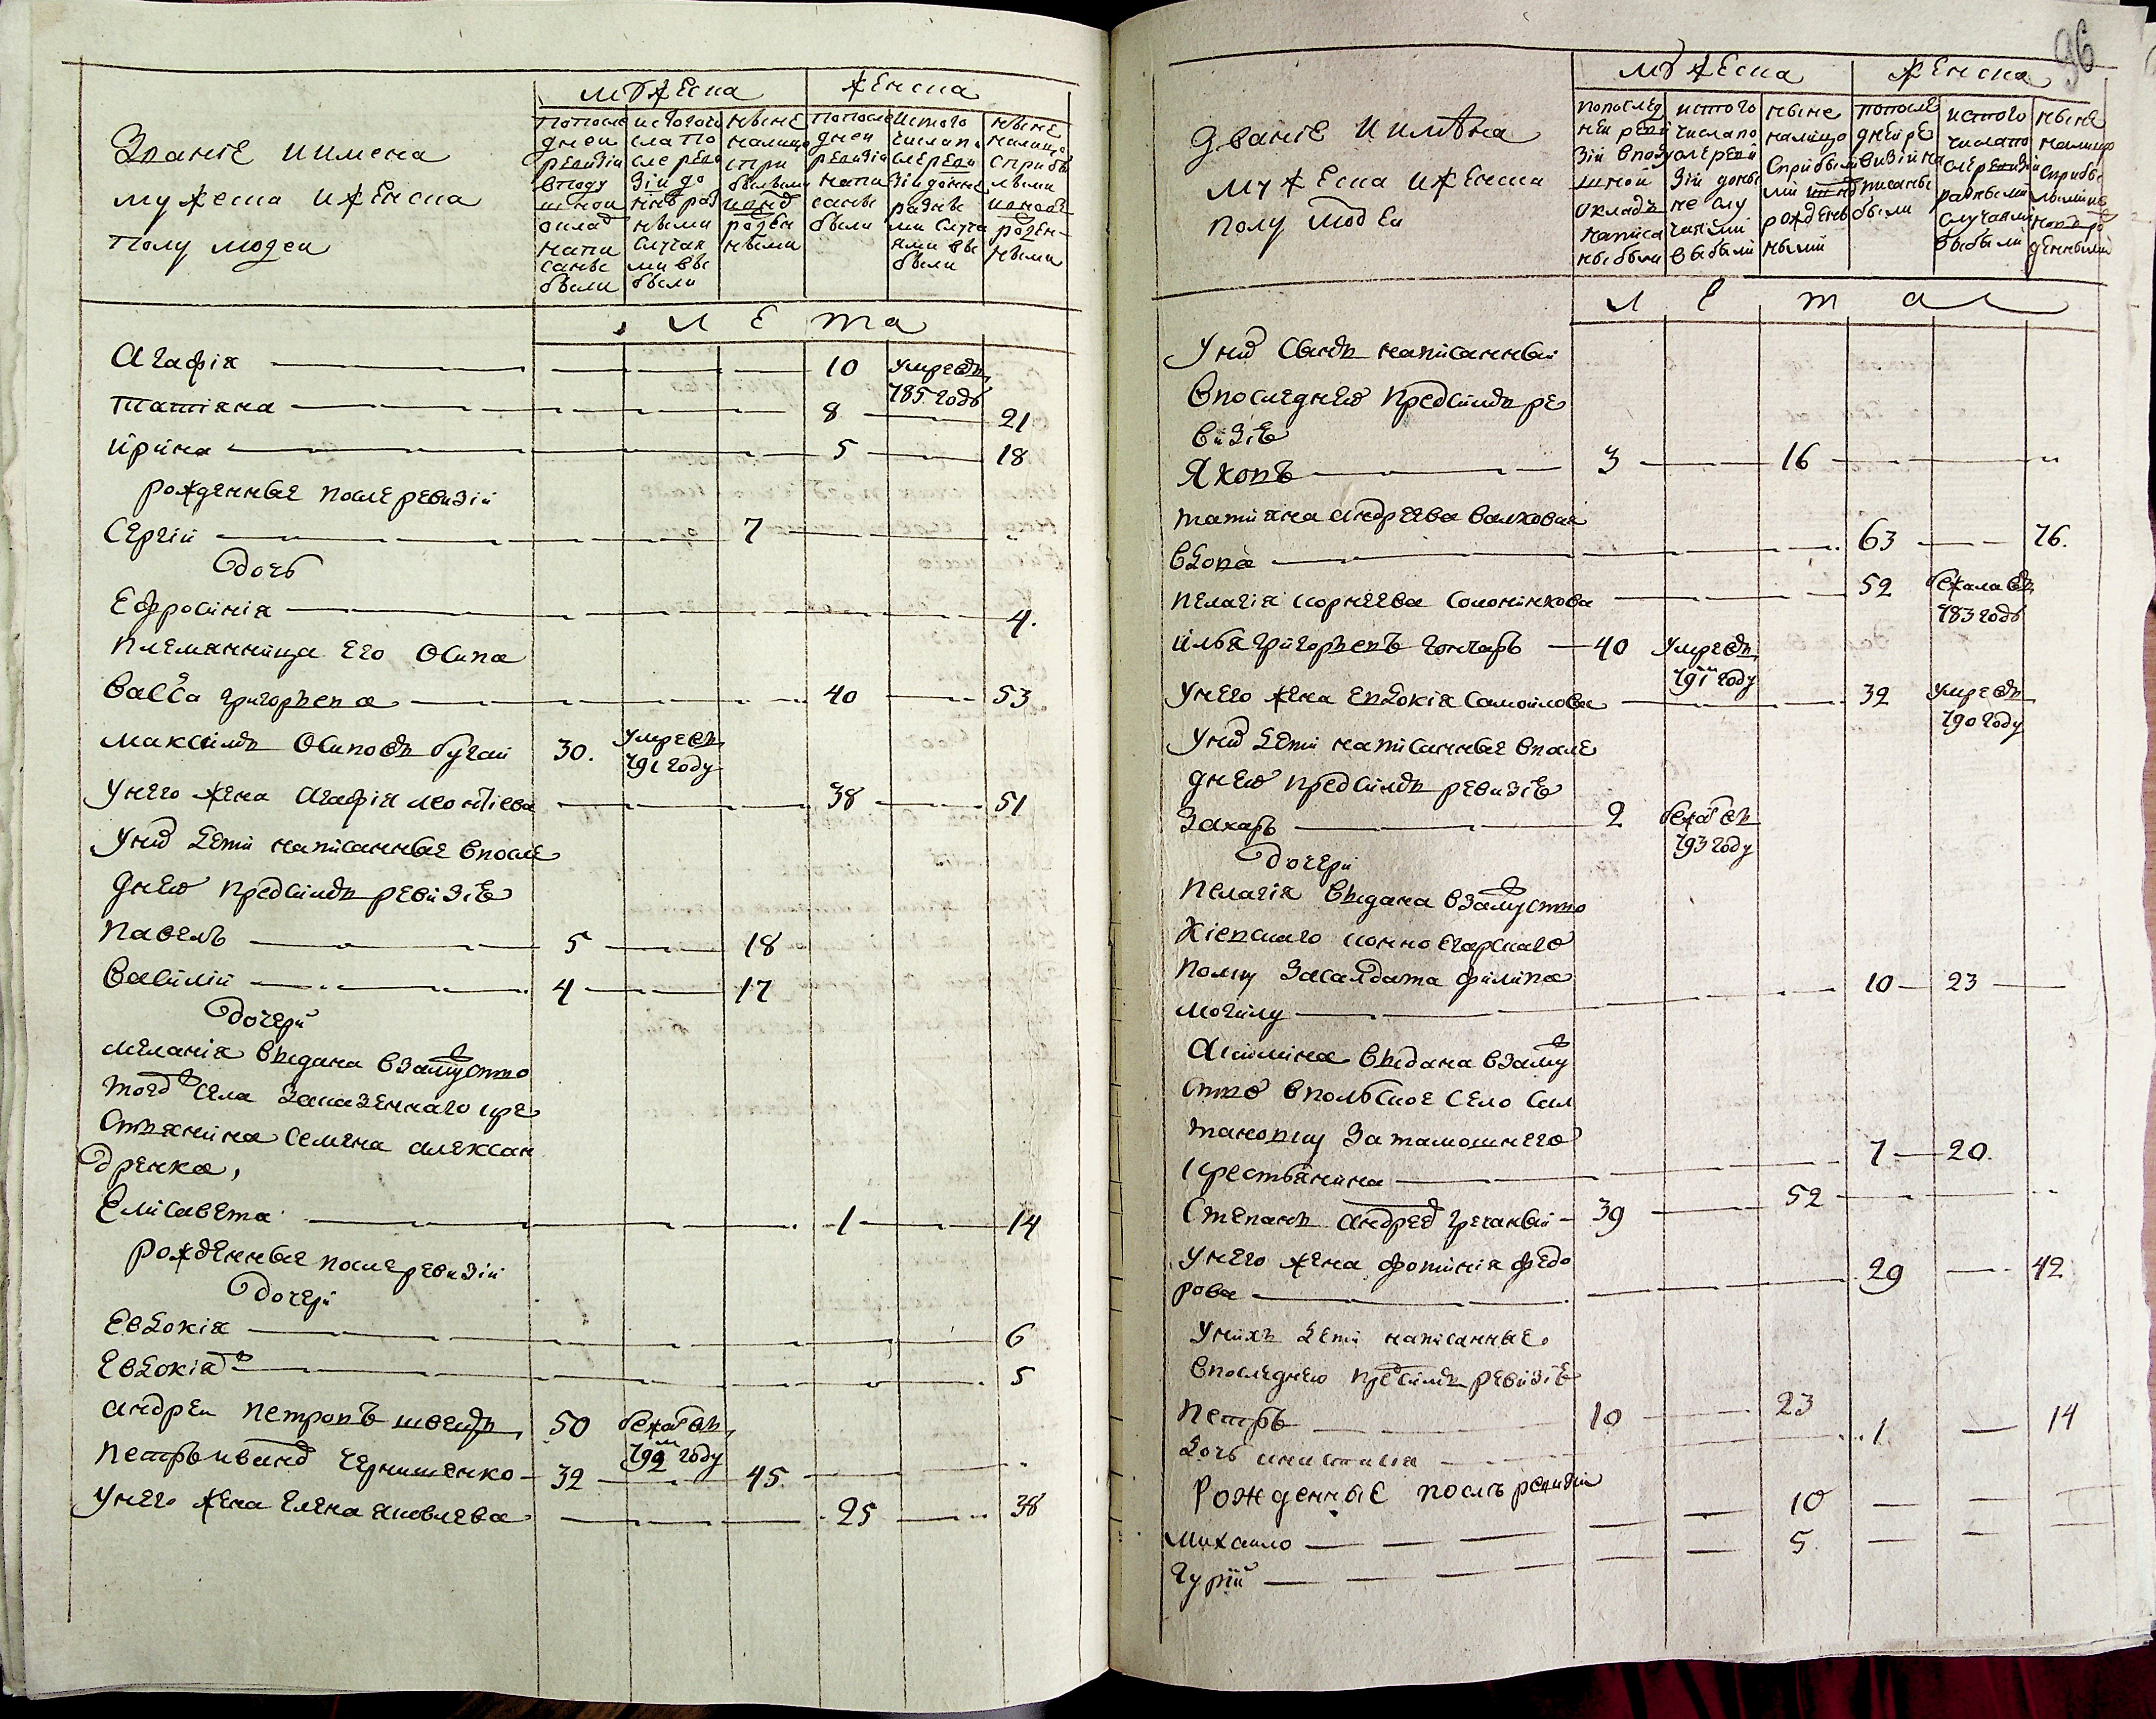 Званіе иимена
мужеска иженска
полу людеи
мужеска
женска
попосле
днеи
ревизіи
вподу
шнои
оклад
напи
саны
были
истогочи
сла по
сле реви
зіи до
нне раз
ными
случая
ми вы
были
ныне
налицо
спри
былыми
ионов
рожден
ными
попосле
днеи
ревизіи
напи
саны
были
истого
числапо
слереви
зіидонне
разны
ми случа
ями вы
были
ныне
налицо
сприбы
лыми
ионово
рожден
ными
лета
Агафія — 10 умре въ
785 году
татіяна — 8 — 21
ирина — 5 — 18
рожденные после ревизіи
Сергіи — 7
дочь
Ефросинія — 4.
племянница Его Осипа
Васса григорьева — 40 — 53
максимъ Осиповъ бугаи 30. умре въ
791 году
унего жена Агафія леонтіева — 38 — 51
уних дети написанные впосле
днею предсимъ ревизіе
павелъ — 5 — 18
василіи — 4 — 17
дочери
меланія выдана взамуство
тогож села заказеннаго кре
стьянина семена алексан
дренка,
Елисавета — 1 — 14
рожденные после ревизіи
дочери
Евдокія — 6
Евдокія ж — 5
андреи петровъ швецъ 50 бежал въ
792м году
петръ иванов чернишенко — 32 — 45
унего жена елена яковлева — 25 — 38
96
Званіе иимена
мужеска иженска
полу людеи
мужеска
женска
попослед
неи реви
зіи вподу
шнои
окладъ
написа
ны были
истого
числапо
слереви
зіи доны
не слу
чаями
выбыли
ныне
налицо
сприбылы
ми ионов
рожден
ными
попосле
днеире
визіина
писаны
были
истого
числапо
слеревизіи
разными
случаями
выбыли
ныне
налицо
сприбы
лымиио
новоро
жденными
лета
уних сынъ написанныи
впоследнею предсимъ ре
визіе
Яковъ — 3 — 16
татияна андреева валховая
вдова — 63 — 76.
пелагія корнеева соломникова — 52 бежала въ
783 году
илья григорьевъ гончаръ — 40 умре въ
791м году
унего жена евдокія самоилова — 32 умре въ
790 году
уних дети написанные впосле
днею предсимъ ревизіе
Захаръ — 2 бежал въ
793 году
дочери
пелагія выдана взамуство
Кіевскаго конноегарскаго
полку засалдата филипа
могилу — 10 — 23
Акилина выдана взаму
ство впольское село сал
тановку затамошнего
крестьянина — 7 — 20.
Степанъ андреев гречаныи — 39 — 52
унего жена фотинія федо
рова — 29 — 42
унихъ дети написанные
впоследнею предсимъ ревизіе
петръ 10 — 23
дочь анастасія — 1 — 14
Рожденные послъ ревизіи
Михаило — 10
Гуріи — 5